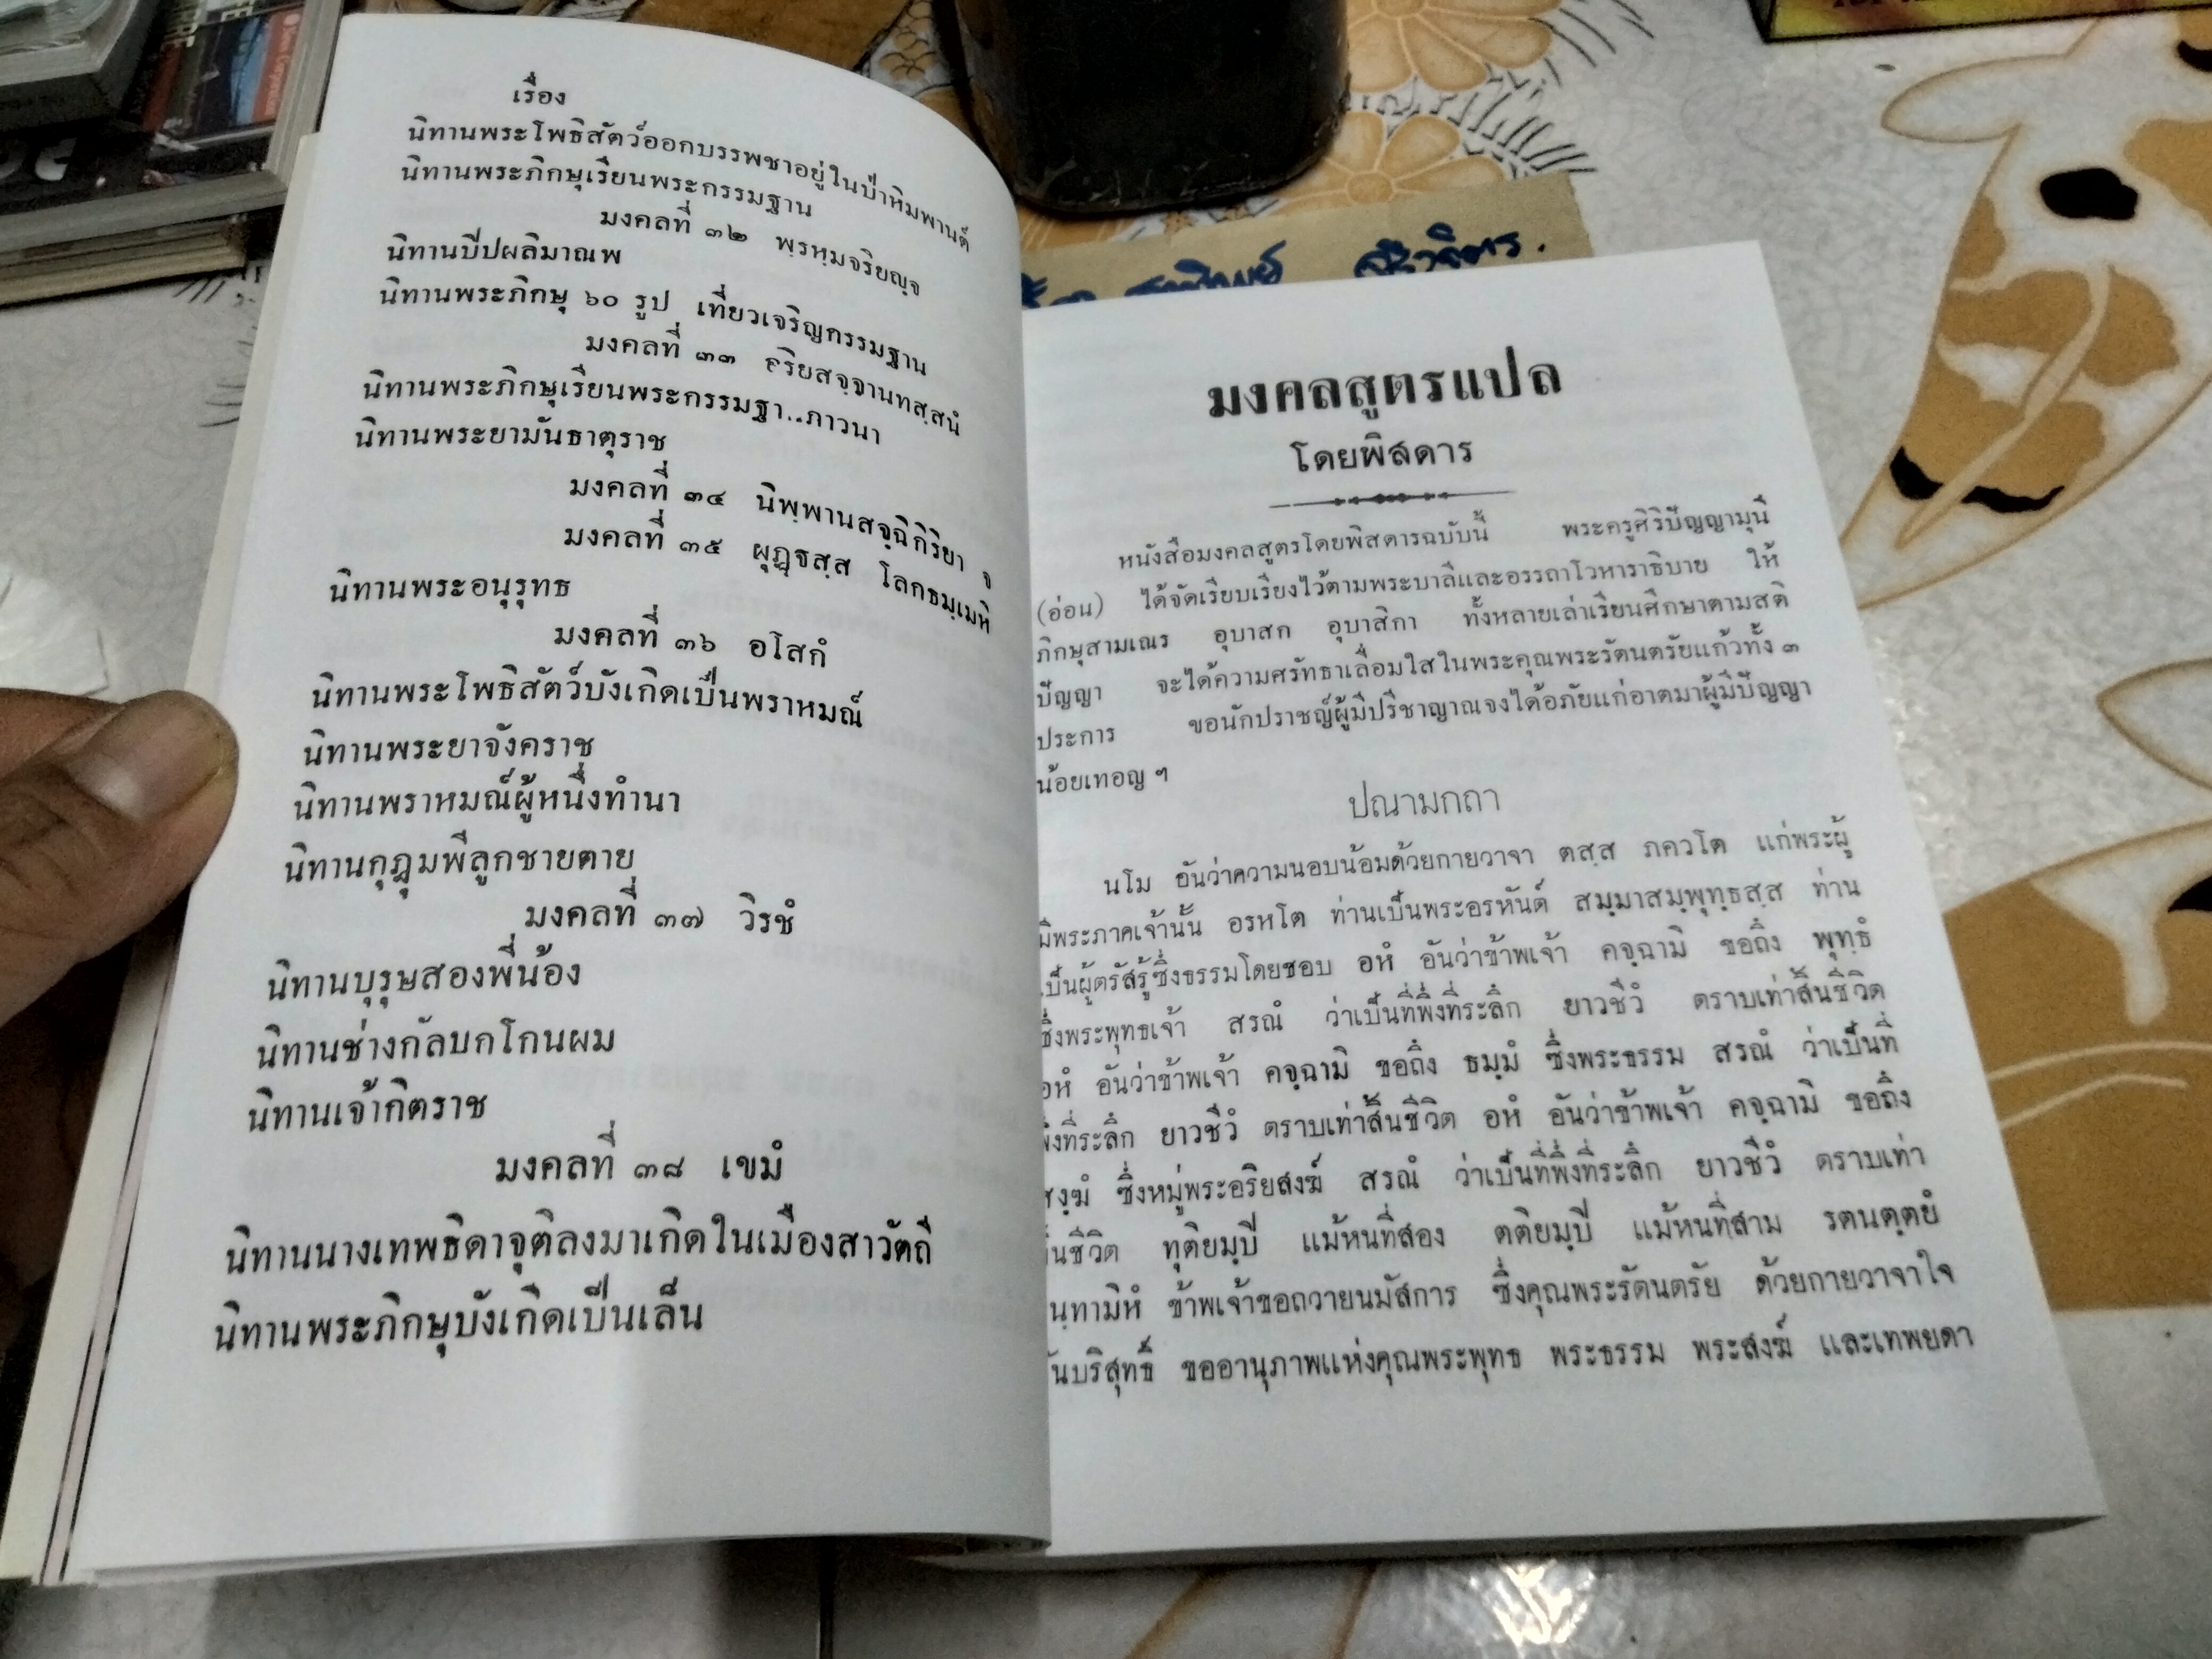 เรื่อง
นิทานพระโพธิสัตว์ออกบรรพชาอยู่ในป่าหิมพานต์
นิทานพระภิกษุเรียนพระกรรมฐาน
มงคลที่ ๓๒ พฺรหฺมจริยญฺจ
นิทานปีปผลิมาณพ
นิทานพระภิกษุ ๖๐ รูป เที่ยวเจริญกรรมฐาน
มงคลที่ ๓๓ อริยสจฺจานทสฺสนํ
นิทานพระภิกษุเรียนพระกรรมฐา..ภาวนา
นิทานพระยามันธาตุราช
มงคลที่ ๓๔ นิพฺพานสจฺฉิกิริยา จ
มงคลที่ ๓๕ ผุฏฺฐสฺส โลกธมฺเมหิ
นิทานพระอนุรุทธ
มงคลที่ ๓๖ อโสกํ
นิทานพระโพธิสัตว์บังเกิดเป็นพราหมณ์
นิทานพระยาจังคราช
นิทานพราหมณ์ผู้หนึ่งทำนา
นิทานกุฎุมพีลูกชายตาย
มงคลที่ ๓๗ วิรชํ
นิทานบุรุษสองพี่น้อง
นิทานช่างกัลบกโกนผม
นิทานเจ้ากิตราช
มงคลที่ ๓๘ เขมํ
นิทานนางเทพธิดาจุติลงมาเกิดในเมืองสาวัตถี
นิทานพระภิกษุบังเกิดเป็นเล็น
มงคลสูตรแปล
โดยพิสดาร
หนังสือมงคลสูตรโดยพิสดารฉบับนี้ พระครูศิริปัญญามุนี
(อ่อน) ได้จัดเรียบเรียงไว้ตามพระบาลีและอรรถาโวหาราธิบาย ให้
ภิกษุสามเณร อุบาสก อุบาสิกา ทั้งหลายเล่าเรียนศึกษาตามสติ
ปัญญา จะได้ความศรัทธาเลื่อมใสในพระคุณพระรัตนตรัยแก้วทั้ง ๓
ประการ ขอนักปราชญ์ผู้มีปรีชาญาณจงได้อภัยแก่อาตมาผู้มีปัญญา
น้อยเทอญ ฯ
ปณามกถา
นโม อันว่าความนอบน้อมด้วยกายวาจา ตสฺส ภควโต แก่พระผู้
มีพระภาคเจ้านั้น อรหโต ท่านเป็นพระอรหันต์ สมฺมาสมฺพุทฺธสฺส ท่าน
เป็นผู้ตรัสรู้ซึ่งธรรมโดยชอบ อหํ อันว่าข้าพเจ้า คจฺฉามิ ขอถึง พุทฺธํ
ซึ่งพระพุทธเจ้า สรณํ ว่าเป็นที่พึ่งที่ระลึก ยาวชีวํ ตราบเท่าสิ้นชีวิต
อหํ อันว่าข้าพเจ้า คจฺฉามิ ขอถึง ธมฺมํ ซึ่งพระธรรม สรณํ ว่าเป็นที่
พึ่งที่ระลึก ยาวชีวํ ตราบเท่าสิ้นชีวิต อหํ อันว่าข้าพเจ้า คจฺฉามิ ขอถึง
สงฺฆํ ซึ่งหมู่พระอริยสงฆ์ สรณํ ว่าเป็นที่พึ่งที่ระลึก ยาวชีวํ ตราบเท่า
สิ้นชีวิต ทุติยมฺปิ แม้หนที่สอง ตติยมฺปิ แม้หนที่สาม รตนตฺตยํ
นฺทามิหํ ข้าพเจ้าขอถวายนมัสการ ซึ่งคุณพระรัตนตรัย ด้วยกายวาจาใจ
นบริสุทธิ์ ขออานุภาพแห่งคุณพระพุทธ พระธรรม พระสงฆ์ และเทพยดา